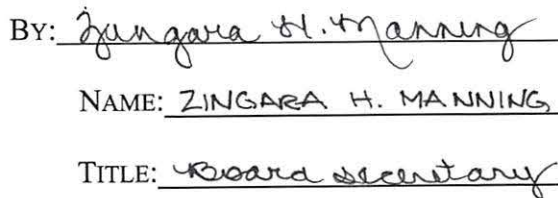 BY: Zungara H. Manning
NAME: ZINGARA H. MANNING
TITLE: Board secretary